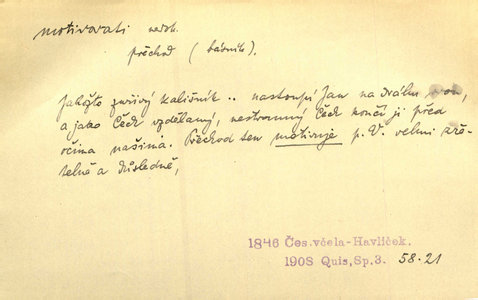 motivovati nedok.
přechod (básník).
Jakožto zuřivý kališník .. nastoupí Jan na dráhu svou,
a jako Čech vzdělaný, nestranný Čech končí ji před
očima našima. Přechod ten motivuje p. V. velmi zře-
telně a důsledně,
1846 Čes. včela-Havlíček.
1908 Quis, Sp. 3. 58.21